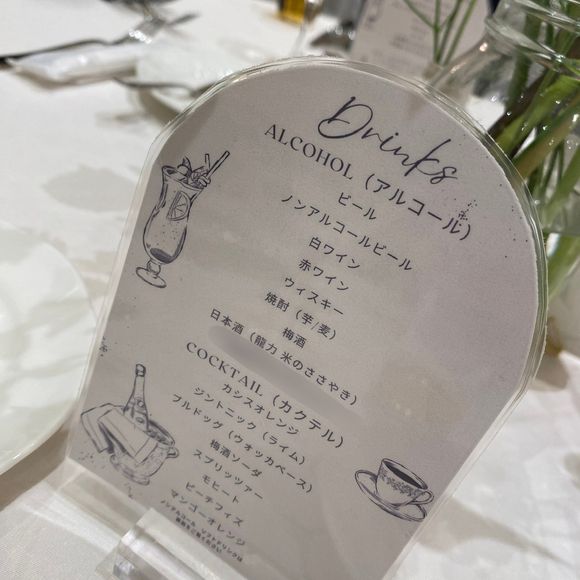 Drinks
ALCOHOL（アルコール）
ビール
ノンアルコールビール
白ワイン
赤ワイン
ウィスキー
焼酎（芋/麦）
梅酒
日本酒（龍力 米のささやき）
COCKTAIL（カクテル）
カシスオレンジ
ジントニック（ライム）
ブルドッグ（ウオッカベース）
梅酒ソーダ
スプリッツァー
モヒート
ピーチフィズ
マンゴーオレンジ
ノンアルコール、ソフトドリンクは